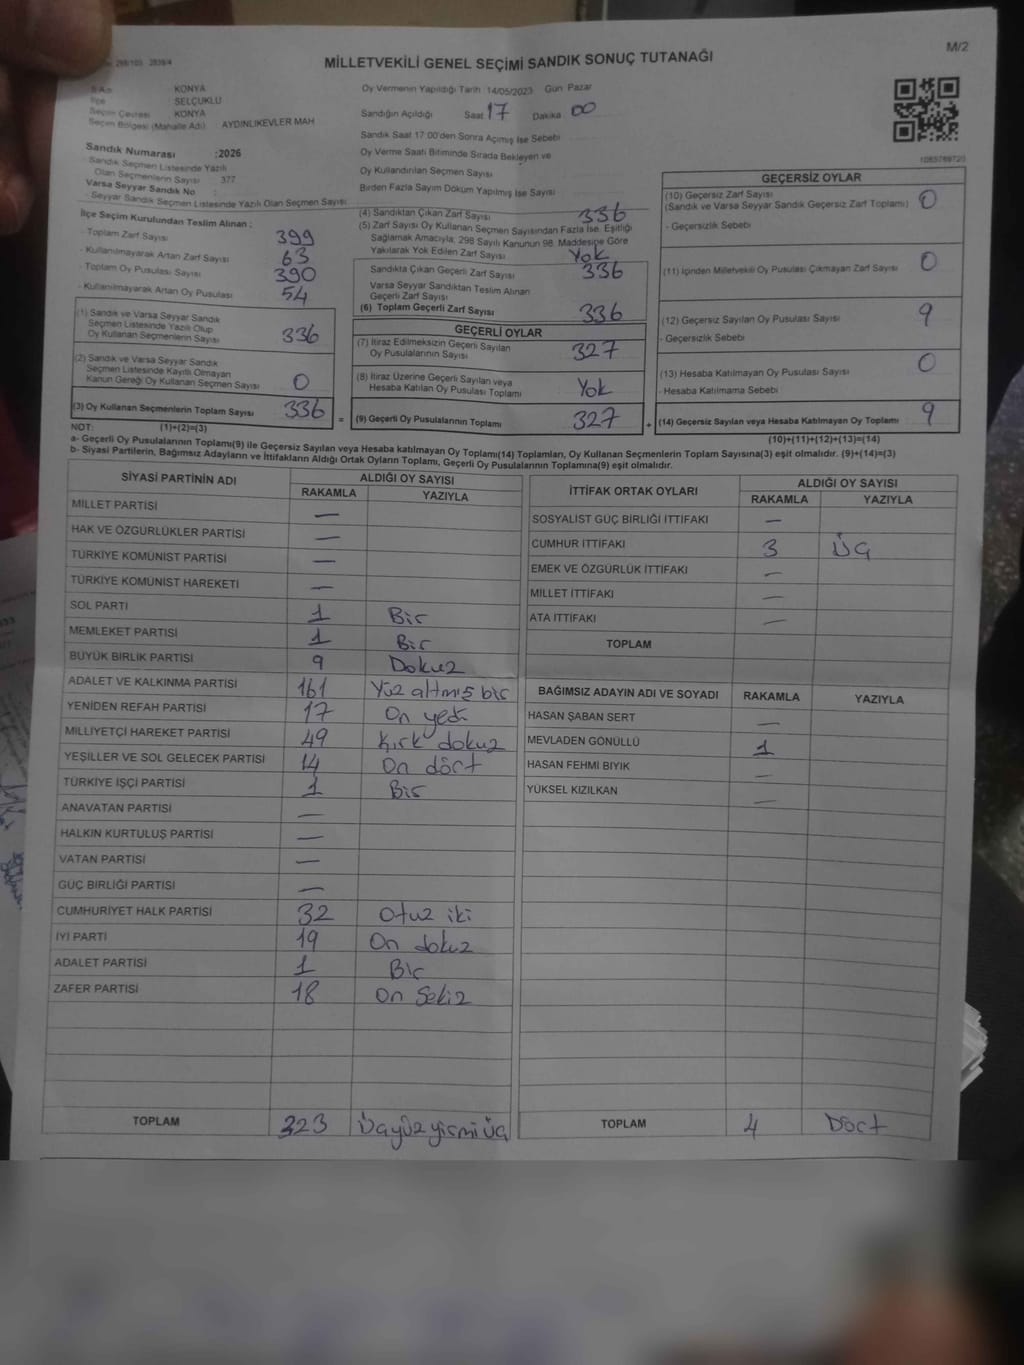 M/2
298/103 2839/4
MİLLETVEKİLİ GENEL SEÇİMİ SANDIK SONUÇ TUTANAĞI
İl Adı : KONYA
İlçe : SELÇUKLU
Seçim Çevresi : KONYA
Seçim Bölgesi (Mahalle Adı) : AYDINLIKEVLER MAH
Sandık Numarası :2026
- Sandık Seçmen Listesinde Yazılı
Olan Seçmenlerin Sayısı : 377
Varsa Seyyar Sandık No :
- Seyyar Sandık Seçmen Listesinde Yazılı Olan Seçmen Sayısı :
Oy Vermenin Yapıldığı Tarih :14/05/2023 Gün Pazar
Sandığın Açıldığı Saat 17 Dakika 00
Sandık Saat 17:00'den Sonra Açımış İse Sebebi
Oy Verme Saati Bitiminde Sırada Bekleyen ve
Oy Kullandırılan Seçmen Sayısı
Birden Fazla Sayım Döküm Yapılmış İse Sayısı
1085789720
İlçe Seçim Kurulundan Teslim Alınan :
- Toplam Zarf Sayısı 399
- Kullanılmayarak Artan Zarf Sayısı 63
- Toplam Oy Pusulası Sayısı 390
- Kullanılmayarak Artan Oy Pusulası 54
(1) Sandık ve Varsa Seyyar Sandık
Seçmen Listesinde Yazılı Olup
Oy Kullanan Seçmenlerin Sayısı 336
(2) Sandık ve Varsa Seyyar Sandık
Seçmen Listesinde Kayıtlı Olmayan
Kanun Gereği Oy Kullanan Seçmen Sayısı 0
(3) Oy Kullanan Seçmenlerin Toplam Sayısı 336 =
(4) Sandıktan Çıkan Zarf Sayısı 336
(5) Zarf Sayısı Oy Kullanan Seçmen Sayısından Fazla İse, Eşitliği
Sağlamak Amacıyla, 298 Sayılı Kanunun 98. Maddesine Göre
Yakılarak Yok Edilen Zarf Sayısı Yok
Sandıkta Çıkan Geçerli Zarf Sayısı 336
Varsa Seyyar Sandıktan Teslim Alınan
Geçerli Zarf Sayısı
(6) Toplam Geçerli Zarf Sayısı 336
GEÇERLİ OYLAR
(7) İtiraz Edilmeksizin Geçerli Sayılan
Oy Pusulalarının Sayısı 327
(8) İtiraz Üzerine Geçerli Sayılan veya
Hesaba Katılan Oy Pusulası Toplamı Yok
(9) Geçerli Oy Pusulalarının Toplamı 327 +
GEÇERSİZ OYLAR
(10) Geçersiz Zarf Sayısı
(Sandık ve Varsa Seyyar Sandık Geçersiz Zarf Toplamı) 0
- Geçersizlik Sebebi
(11) İçinden Milletvekili Oy Pusulası Çıkmayan Zarf Sayısı 0
(12) Geçersiz Sayılan Oy Pusulası Sayısı 9
- Geçersizlik Sebebi
(13) Hesaba Katılmayan Oy Pusulası Sayısı 0
- Hesaba Katılmama Sebebi
(14) Geçersiz Sayılan veya Hesaba Katılmayan Oy Toplamı 9
NOT: (1)+(2)=(3) (10)+(11)+(12)+(13)=(14)
a- Geçerli Oy Pusulalarının Toplamı(9) ile Geçersiz Sayılan veya Hesaba katılmayan Oy Toplamı(14) Toplamları, Oy Kullanan Seçmenlerin Toplam Sayısına(3) eşit olmalıdır. (9)+(14)=(3)
b- Siyasi Partilerin, Bağımsız Adayların ve İttifakların Aldığı Ortak Oyların Toplamı, Geçerli Oy Pusulalarının Toplamına(9) eşit olmalıdır.
SİYASİ PARTİNİN ADI ALDIĞI OY SAYISI
RAKAMLA YAZIYLA
MİLLET PARTİSİ —
HAK VE ÖZGÜRLÜKLER PARTİSİ —
TÜRKİYE KOMÜNİST PARTİSİ —
TÜRKİYE KOMÜNİST HAREKETİ —
SOL PARTİ 1 Bir
MEMLEKET PARTİSİ 1 Bir
BÜYÜK BİRLİK PARTİSİ 9 Dokuz
ADALET VE KALKINMA PARTİSİ 161 Yüz altmış bir
YENİDEN REFAH PARTİSİ 17 On yedi
MİLLİYETÇİ HAREKET PARTİSİ 49 Kırk dokuz
YEŞİLLER VE SOL GELECEK PARTİSİ 14 On dört
TÜRKİYE İŞÇİ PARTİSİ 1 Bir
ANAVATAN PARTİSİ —
HALKIN KURTULUŞ PARTİSİ —
VATAN PARTİSİ —
GÜÇ BİRLİĞİ PARTİSİ —
CUMHURİYET HALK PARTİSİ 32 Otuz iki
İYİ PARTİ 19 On dokuz
ADALET PARTİSİ 1 Bir
ZAFER PARTİSİ 18 On Sekiz
TOPLAM 323 Üçyüzyirmi üç
İTTİFAK ORTAK OYLARI ALDIĞI OY SAYISI
RAKAMLA YAZIYLA
SOSYALİST GÜÇ BİRLİĞİ İTTİFAKI —
CUMHUR İTTİFAKI 3 Üç
EMEK VE ÖZGÜRLÜK İTTİFAKI —
MİLLET İTTİFAKI —
ATA İTTİFAKI —
TOPLAM
BAĞIMSIZ ADAYIN ADI VE SOYADI RAKAMLA YAZIYLA
HASAN ŞABAN SERT —
MEVLADEN GÖNÜLLÜ 1
HASAN FEHMİ BIYIK —
YÜKSEL KIZILKAN —
TOPLAM 4 Dört